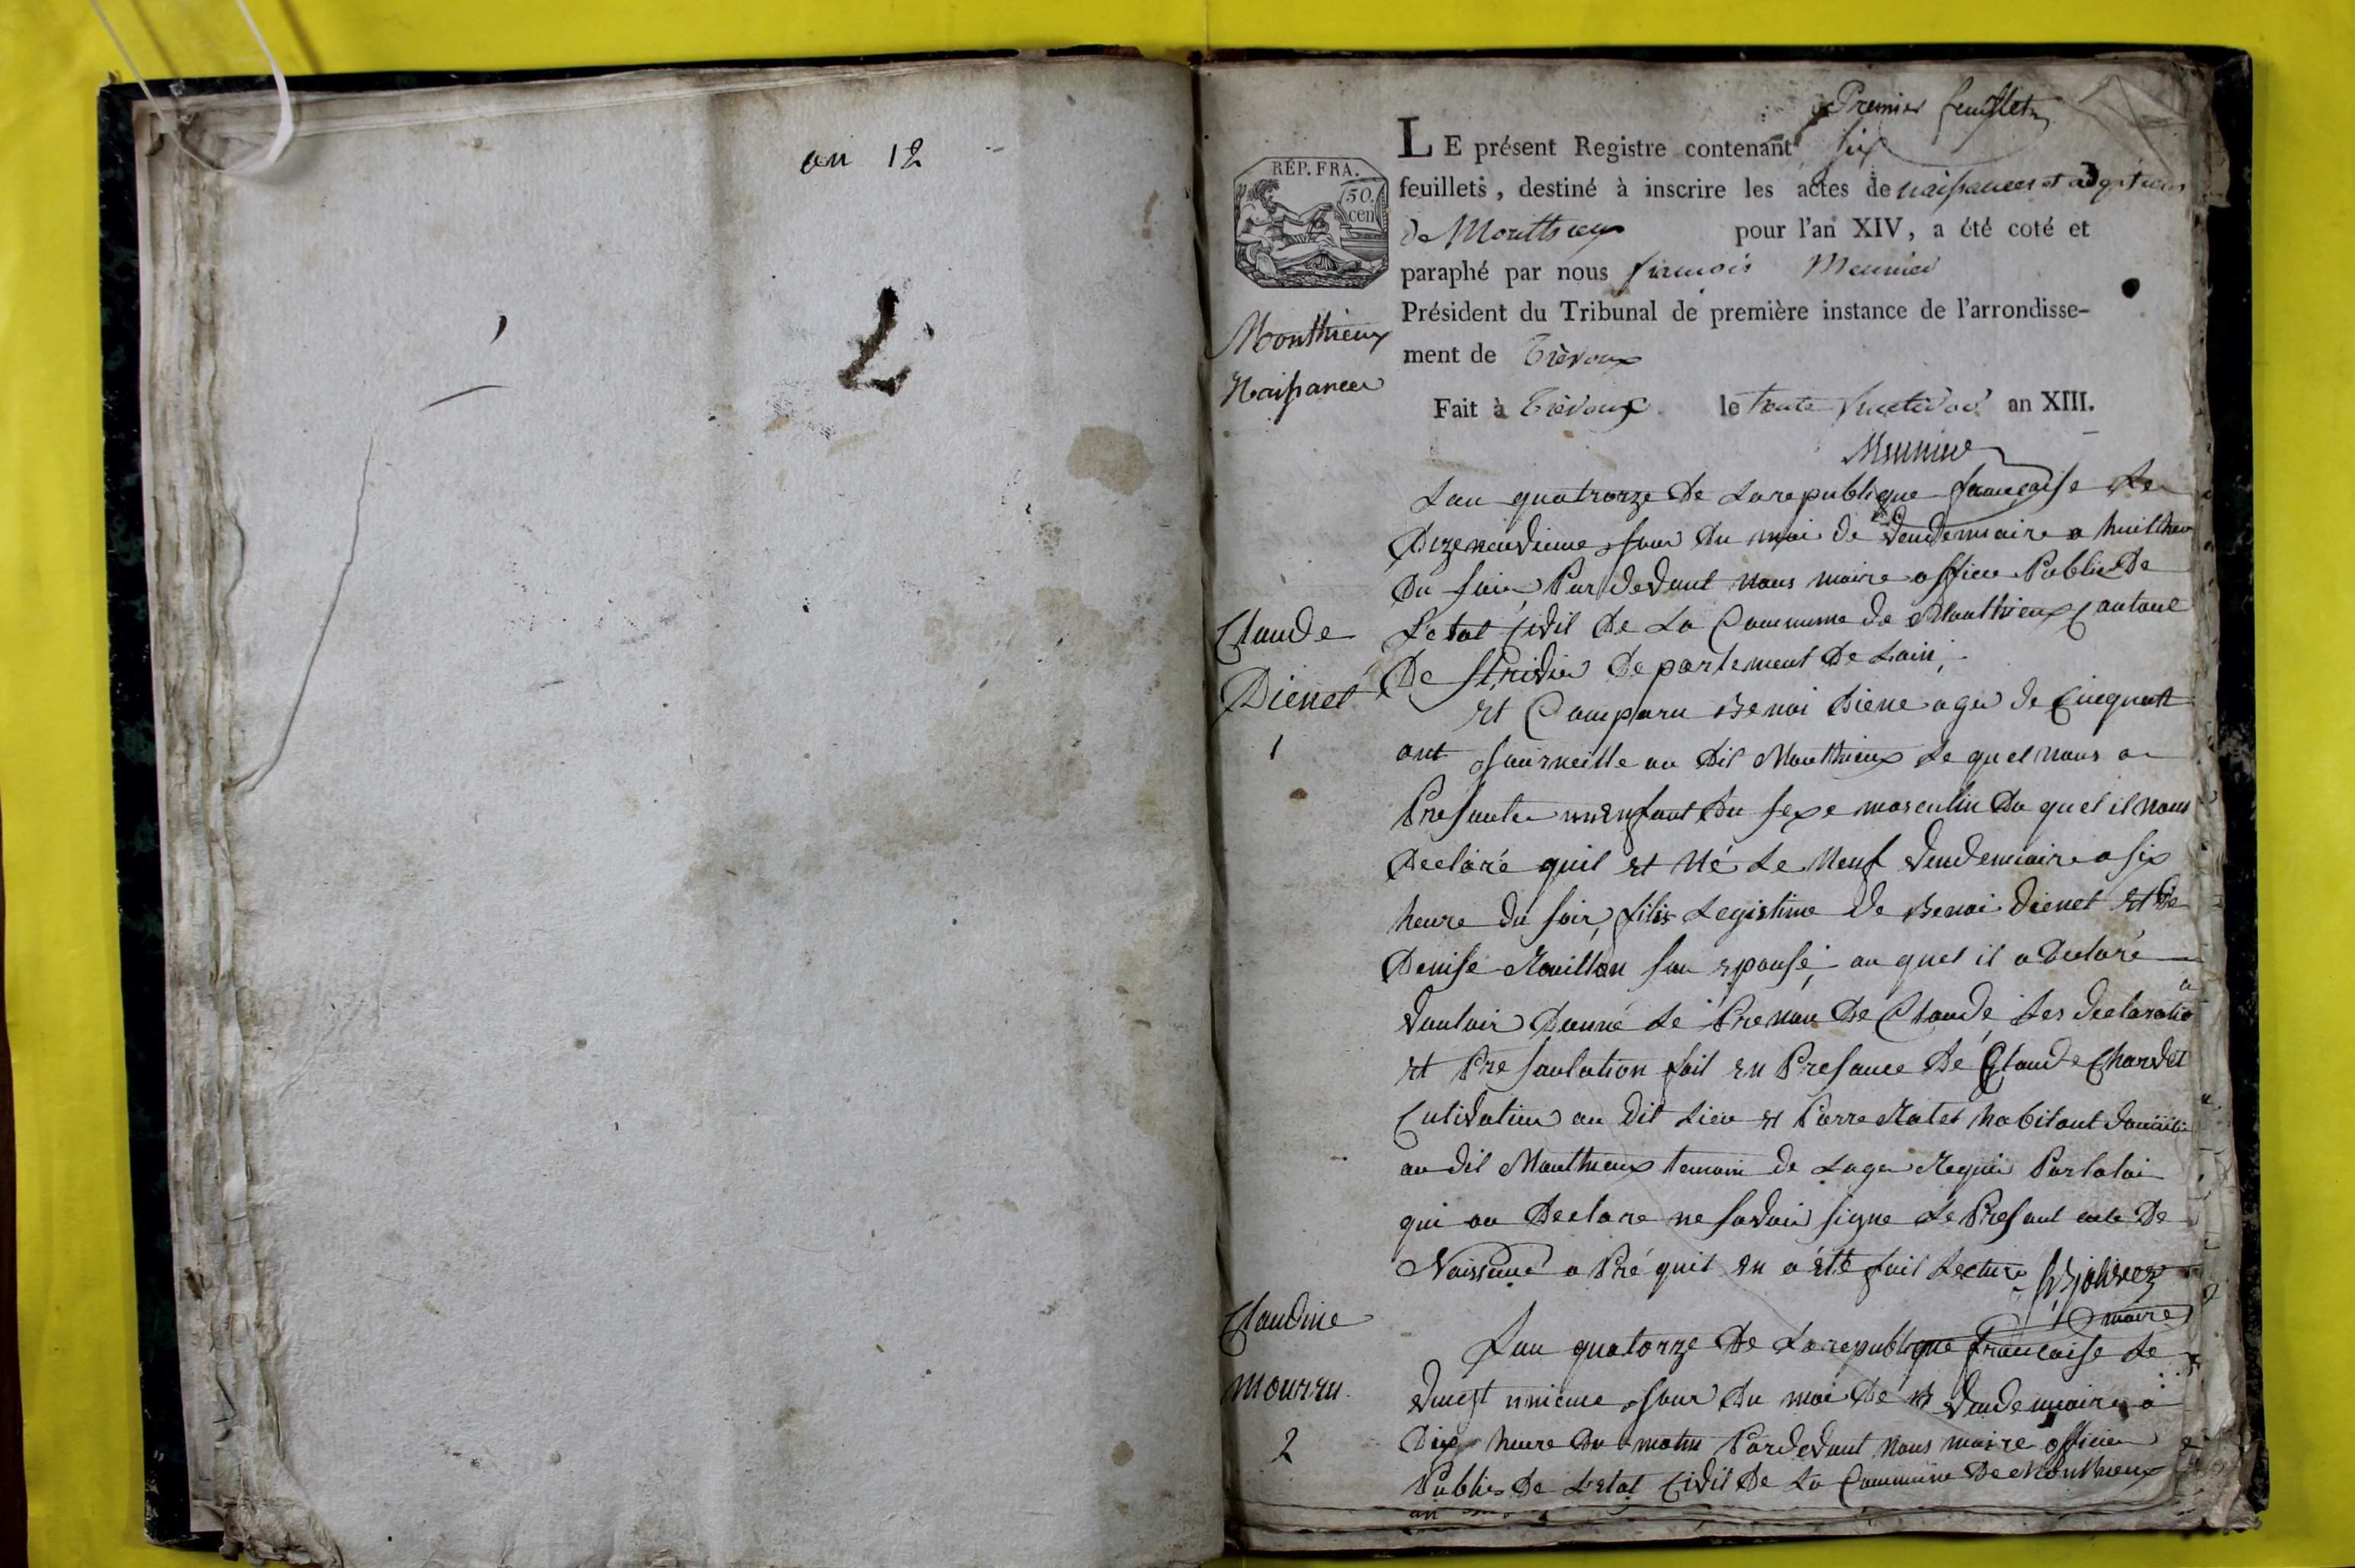 an 12
2
Premier feuillet
LE présent Registre contenant six
feuillets, destiné à inscrire les actes de naissances et adoptions
de Montthieux pour l'an XIV, a été coté et
paraphé par nous françois Meunier
Président du Tribunal de première instance de l'arrondisse-
ment de Trévoux
Fait à Trévoux le trente fructidor an XIII.
Meunier
RÉP. FRA.
50.
cen
Monthieux
Naissances
Claude
Dienet
1
Lan quatrorze de La republique francaise Le
dizeneuvieme jour du moi de vendemiaire a huit heur
du soir Pardevant nous maire officie Public de
Letat sivil de La Commune de Monthieux Cantont
De St trivier departement de Lain,
et Comparu Benoi Diene age de Cinquatt
ant journeille au dit Montthieux Le quel nous a
Presante un enfant du sexe masculin du quel il nous
declaré quil et Né Le Neuf vendemiaire a six
heure du soir, filis Legistime de Benoi dienet et de
Denise Rouillon son epousé, au quel il a declaré
vouloir donné Le Prenon de Claude, Les declaratio
et Presantation fait en Presance de Claude Chardet
Cultivateur au dit Lieu et Parre Matet habitant
au dit Montthieux temoin de Lage Requi Par la loi
qui on declare ne savoir signe Le Presant acte de
Naissance a Pré quil en a été fait Lecture
maire
Claudine
mourru
2
Lan quatorze de La republique francaise Le
vingt unieme jour du moi de vendemiaire a
Dix heure du matin Pardevant Nous maire officier
Public de Letat Civil de La Commune de Monthieux